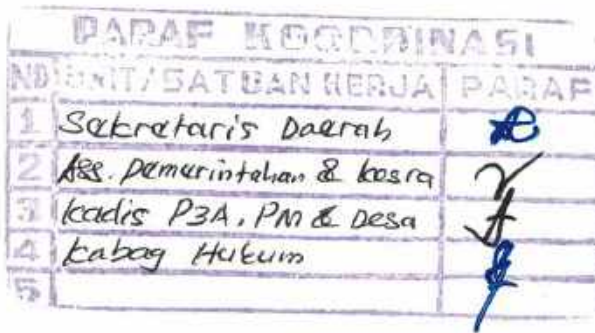 PARAF KOORDINASI
NO UNIT/SATUAN KERJA PARAF
1 Sekretaris Daerah
2 Ass. Pemerintahan & kesra
3 kadis P3A, PM & Desa
4 kabag Hukum
5